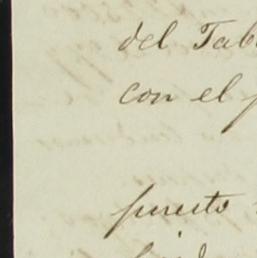 del Tab
con el p
puesto